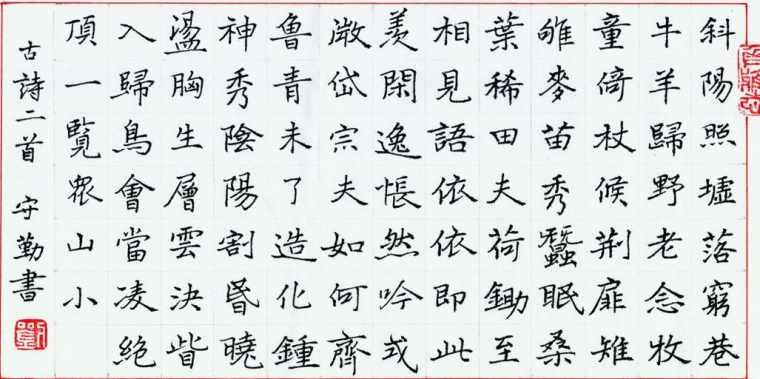 斜陽照墟落窮巷
牛羊歸野老念牧
童倚杖候荆扉雉
雊麥苗秀蠶眠桑
葉稀田夫荷鋤至
相見語依依即此
羨閑逸悵然吟式
微岱宗夫如何齊
魯青未了造化鍾
神秀陰陽割昏曉
盪胸生層雲決眥
入歸鳥會當凌絕
頂一覽衆山小
古詩二首 守勤書